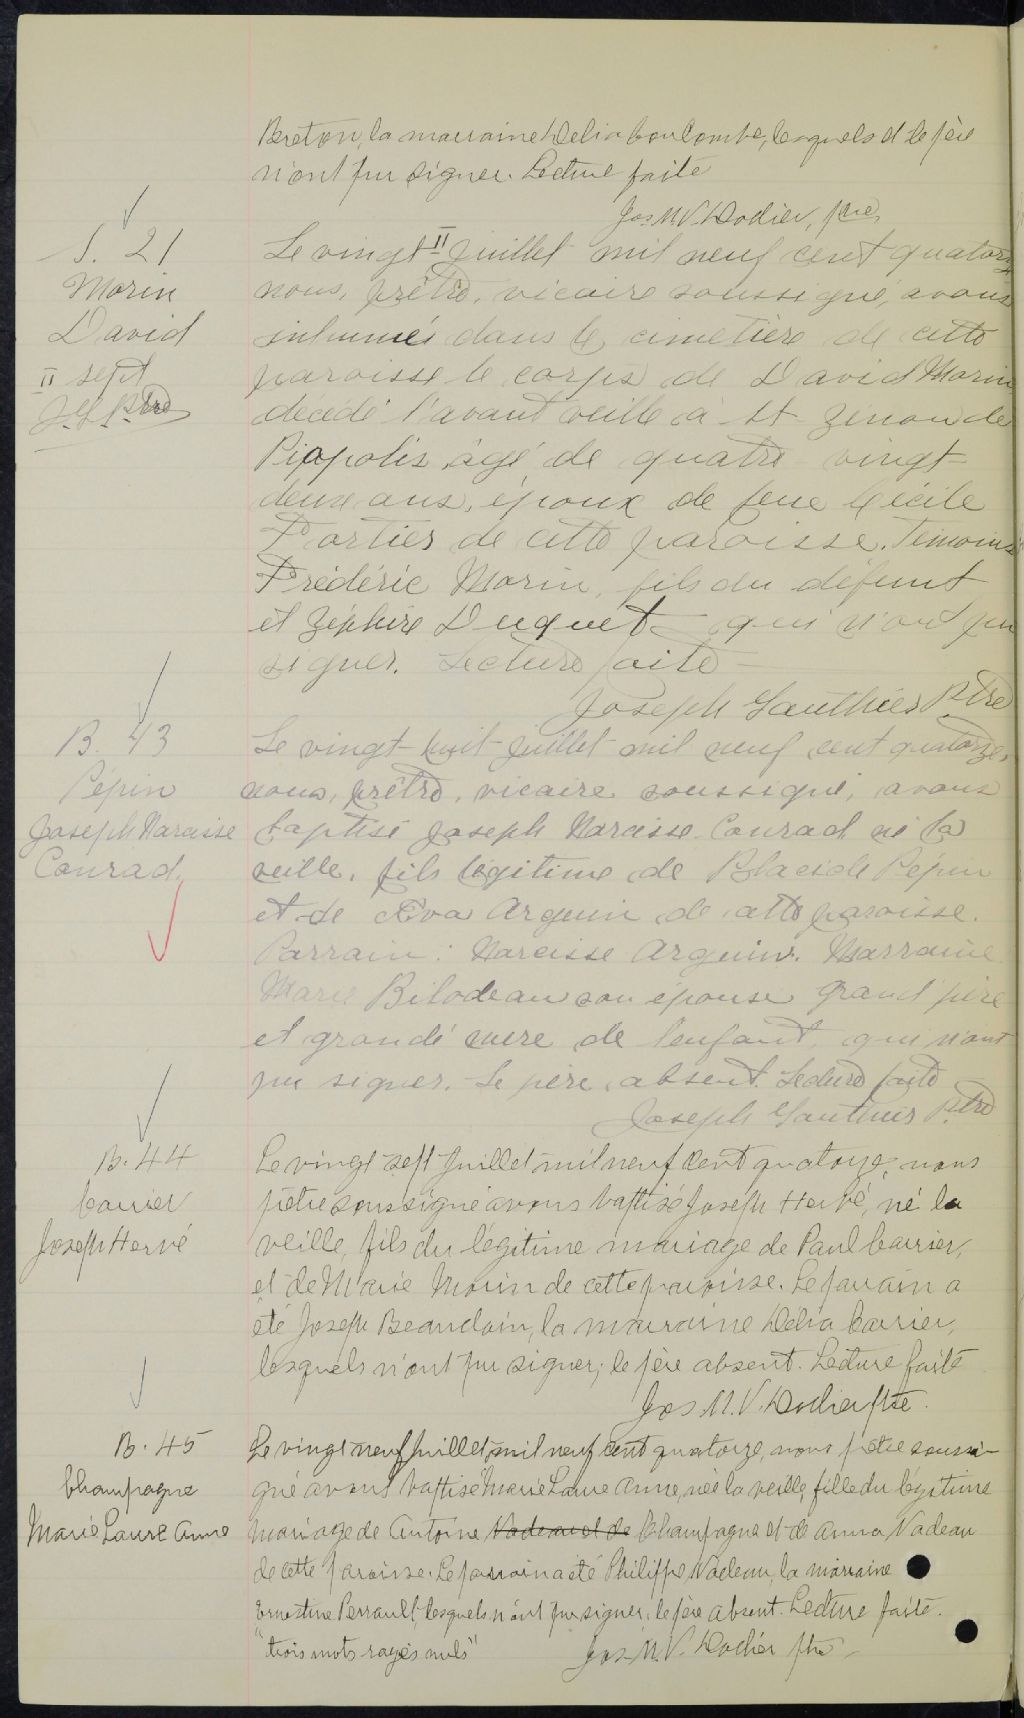 Breton, la marraine Delia Coulombe, lesquels et le père
n'ont pu signer. Lecture faite
Jos M.V. Dodier, ptre
S. 21
Morin
David
II sept
J.G. Ptre
Le vingt II juillet mil neuf cent quatorze
nous, prêtre, vicaire soussigné, avons
inhumés dans le cimetière de cette
paroisse le corps de David Morin
décédé l'avant veille à St Zénon de
Piopolis, agé de quatre vingt
deux ans, époux de feue Cécile
Fortier de cette paroisse. Témoins
Frédéric Morin, fils du défunt
et Zéphire Duquet qui n'ont pu
signer. Lecture faite
Joseph Gauthier Ptre
B. 43
Pépin
Joseph Narcisse
Conrad.
Le vingt-huit juillet mil neuf cent quatorze,
nous, prêtre, vicaire soussigné, avons
baptisé Joseph Narcisse Conrad né la
veille, fils légitime de Placide Pépin
et de Eva Arguin de cette paroisse.
Parrain : Narcisse Arguin. Marraine
Marie Bilodeau son épouse Grand père
et grand'mere de l'enfant qui n'ont
pu signer. Le père absent. Lecture faite
Joseph Gauthier Ptre
B. 44
Carrier
Joseph Hervé
Le vingt sept Juillet mil neuf cent quatorze, nous
prêtre soussigné avons baptisé Joseph Hervé, né la
veille, fils du légitime mariage de Paul Carrier,
et de Marie Morin de cette paroisse. Le parrain a
été Joseph Beaudoin, la marraine Delia Carrier,
lesquels n'ont pu signer; le père absent. Lecture faite
Jos M.V. Dodier ptre.
B. 45
Champagne
Marie Laure Anne
Le vingt neuf Juillet mil neuf cent quatorze, nous prêtre soussi-
gné avons baptisé Marie Laure Anne, née la veille, fille du légitime
mariage de Antoine Nadeau et de Champagne et de Anna Nadeau
de cette paroisse. Le parrain a été Philippe Nadeau, la marraine
Ernestine Perrault, lesquels n'ont pu signer; le père absent. Lecture faite.
"trois mots rayés nuls"
Jos M.V. Dodier ptre